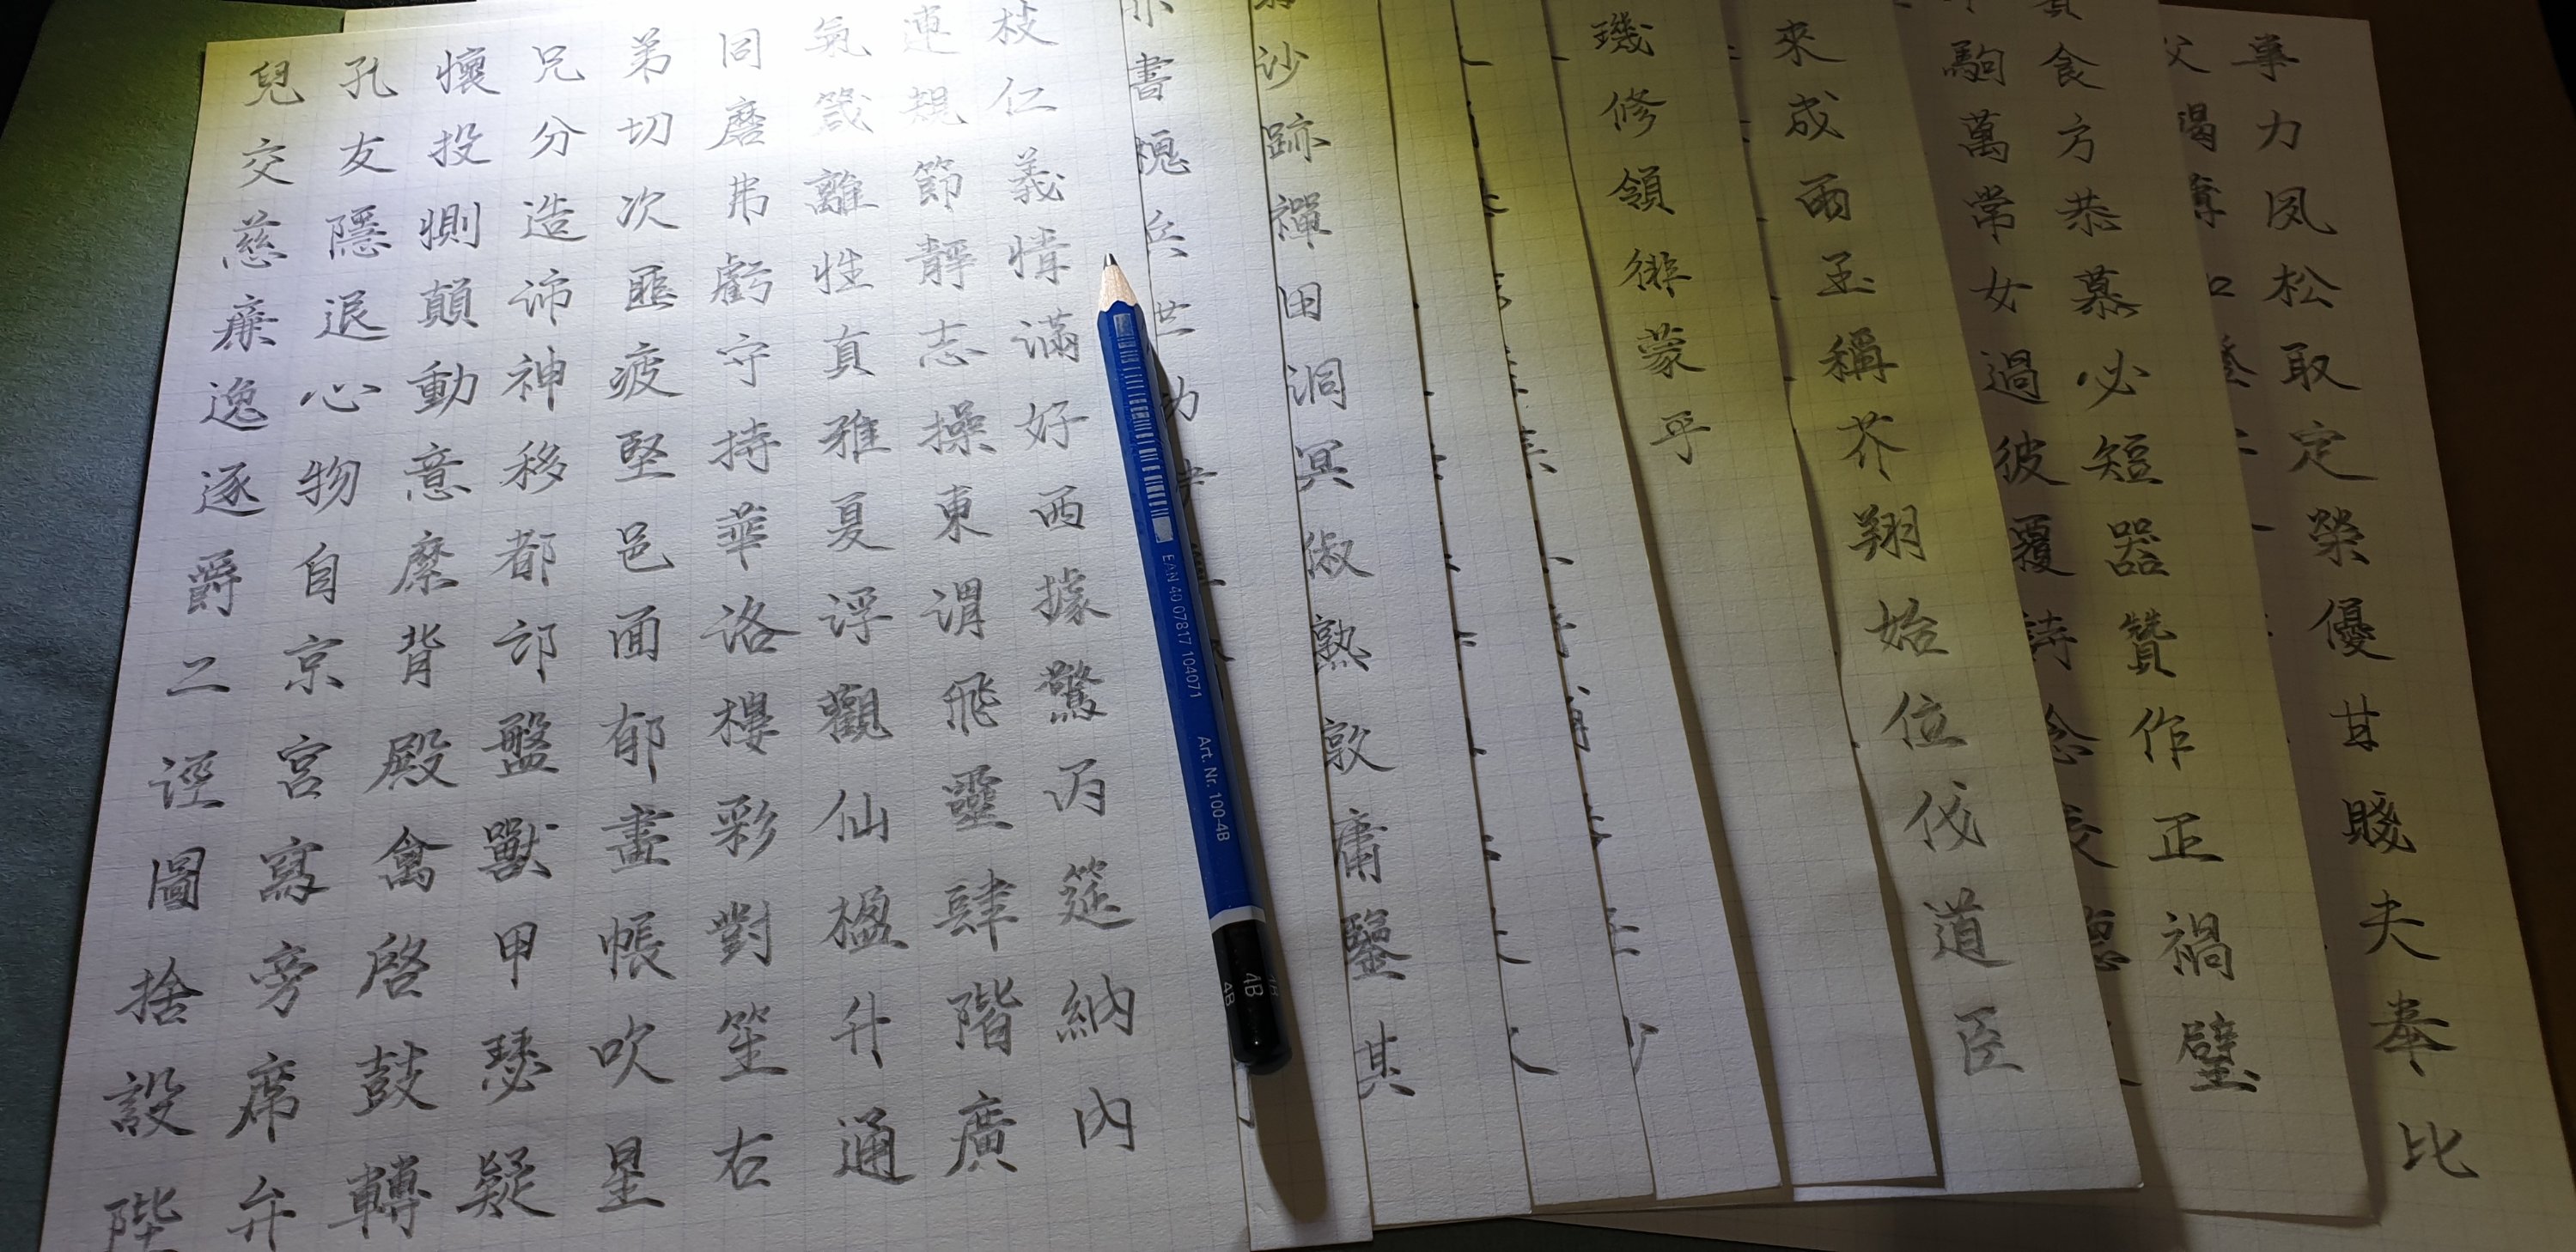 兒孔懷兄弟同氣連枝
交友投分切磨箴規仁
慈隱惻造次弗離節義
廉退顛沛匪虧性靜情
逸心動神疲守真志滿
逐物意移堅持雅操好
爵自縻都邑華夏東西
二京背邙面洛浮渭據
涇宮殿盤郁樓觀飛驚
圖寫禽獸畫彩仙靈丙
捨旁啓甲帳對楹肆筵
設席鼓瑟吹笙升階納
陛弁轉疑星右通廣內
書
槐
兵
世
沙
跡
禪
田
洞
冥
俶
熟
敦
庸
鑒
其
璣
修
領
徘
蒙
乎
來
成
雨
玉
稱
芥
翔
始
位
伐
道
臣
駒食
萬方
常恭
女慕
過必
彼短
覆器
詩贊
念作
正
禍
璧
父事
力
夙
松
取
定
榮
優
甘
賤
夫
奉
比
EAN 40 07817 104071 Art. Nr. 100-4B
4B
4B